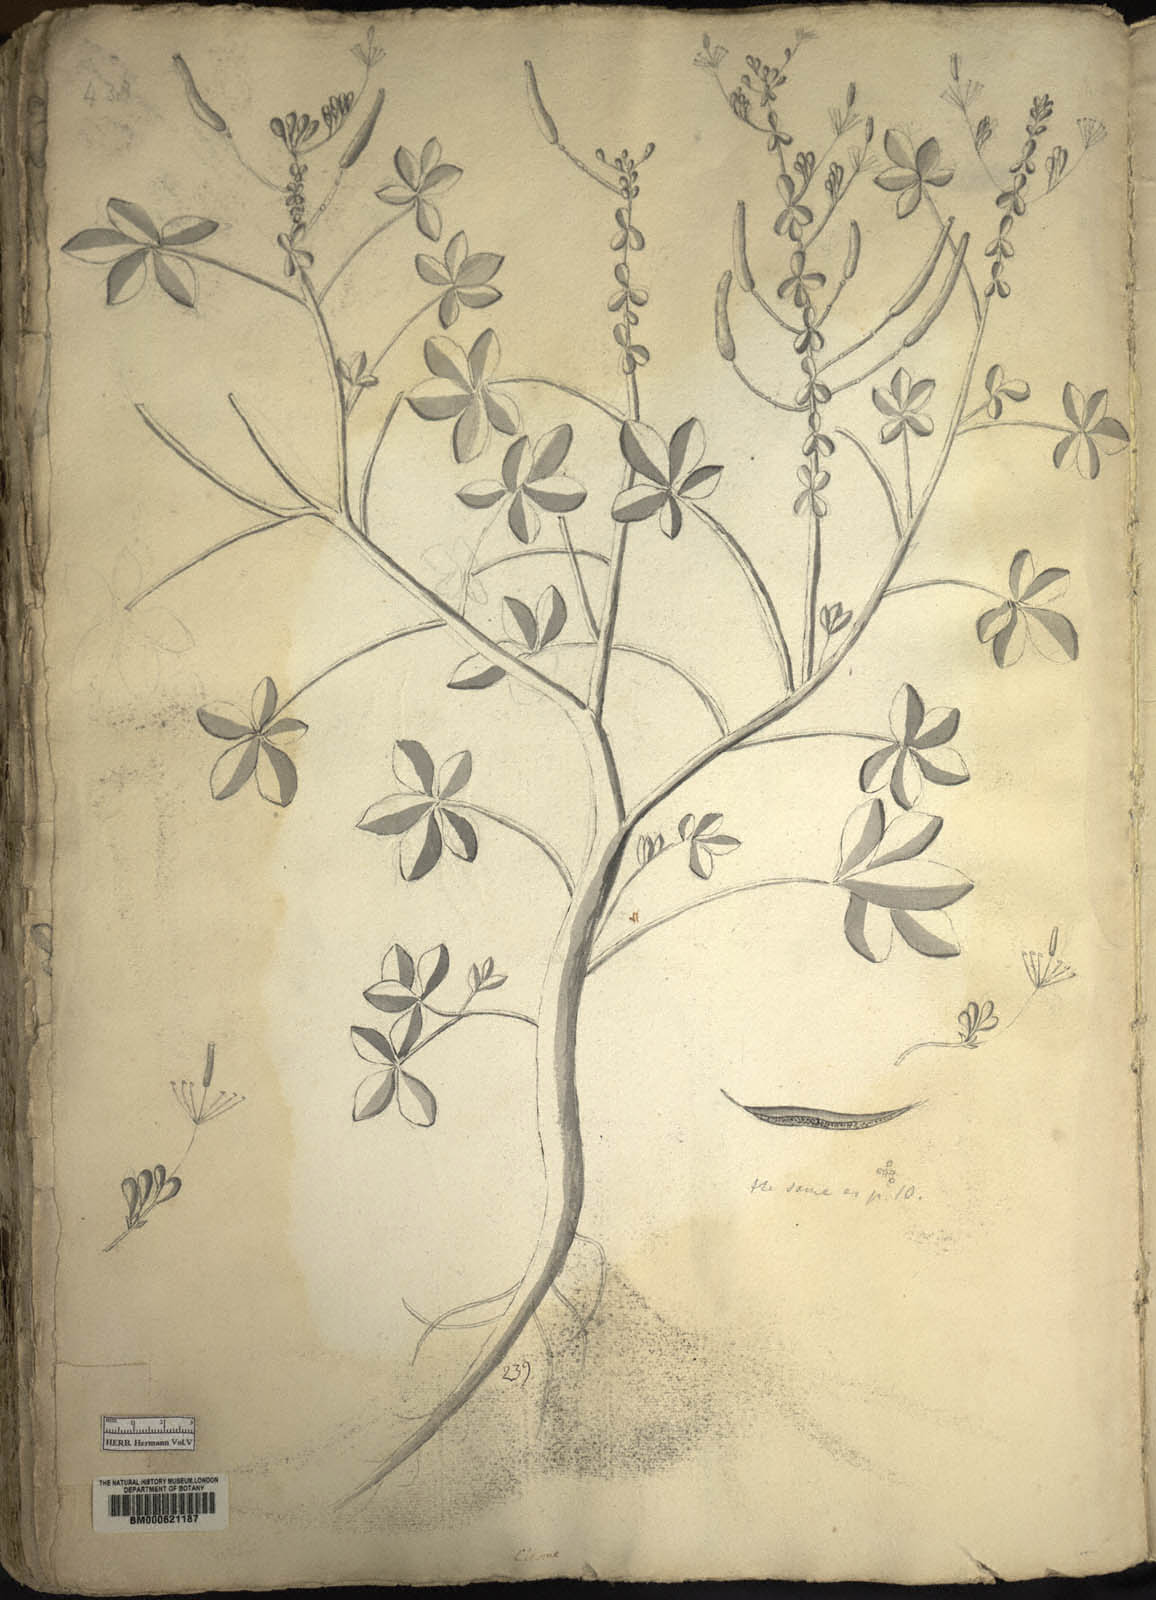 438
the same as p. 10.
239
HERB. Hermann Vol. V
THE NATURAL HISTORY MUSEUM, LONDON
DEPARTMENT OF BOTANY
BM000621187
Cleome